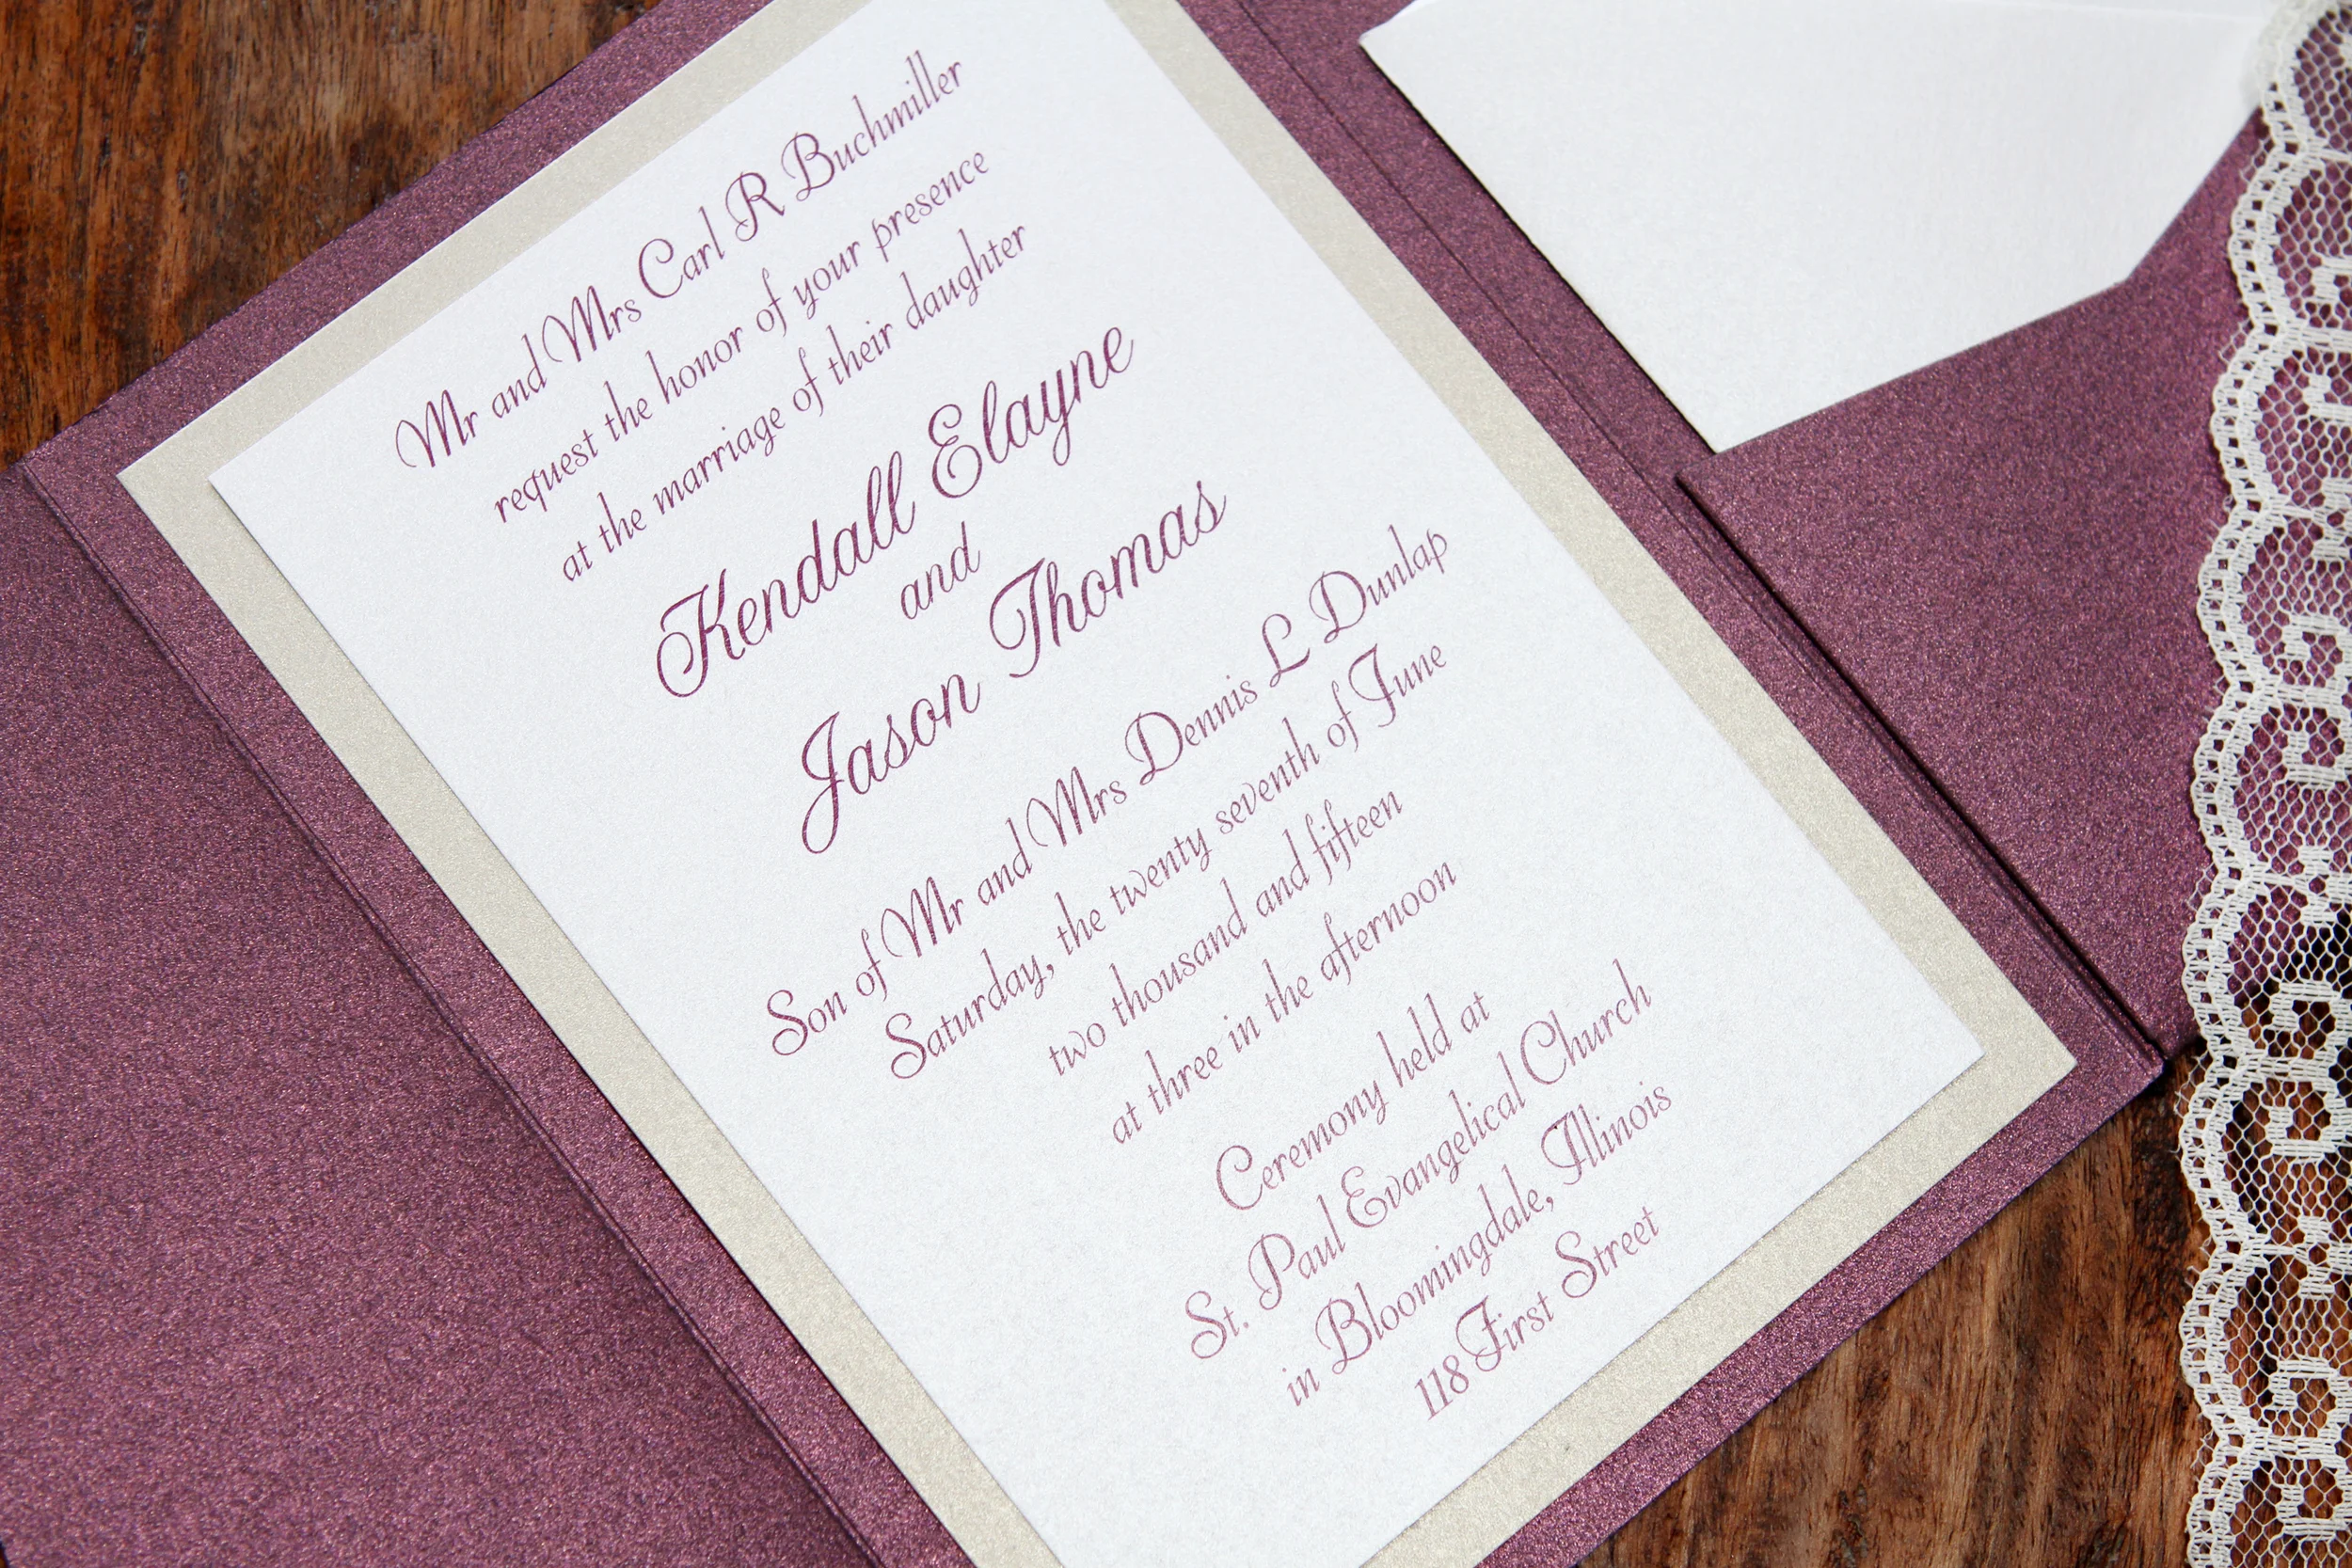 Mr and Mrs Carl R Buchmiller
request the honor of your presence
at the marriage of their daughter
Kendall Elayne
and
Jason Thomas
Son of Mr and Mrs Dennis L Dunlap
Saturday, the twenty seventh of June
two thousand and fifteen
at three in the afternoon
Ceremony held at
St. Paul Evangelical Church
in Bloomingdale, Illinois
118 First Street